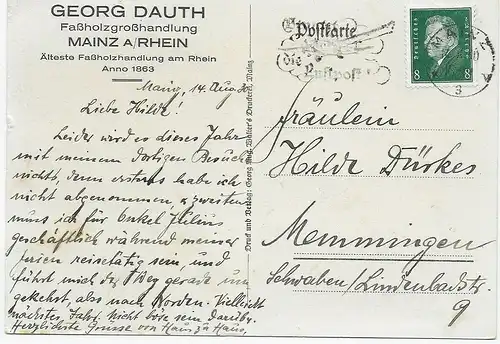 GEORG DAUTH
Faßholzgroßhandlung
MAINZ A/RHEIN
Älteste Faßholzhandlung am Rhein
Anno 1863
Mainz, 14. Aug. 30
Liebe Hilde!
Leider wird es dieses Jahr
mit meinem dortigen Besuch
nichts, denn erstens habe ich
nicht abgenommen, zweitens
muss ich für Onkel Julius
geschäftlich während meiner
Ferien reisetätig sein und
führt mich der Weg gerade um-
gekehrt, also nach Norden. Vielleicht
nächstes Jahr. Nicht böse sein darüber.
Herzlichste Grüsse von Haus zu Haus,
Druck und Verlag: Georg Aug. Walter's Druckerei, Mainz.
Postkarte
die
Luftpost
Deutsches Reich
8 8
Fräulein
Hilde Dürkes
Memmingen
Schwaben/Lindenbadstr.
9